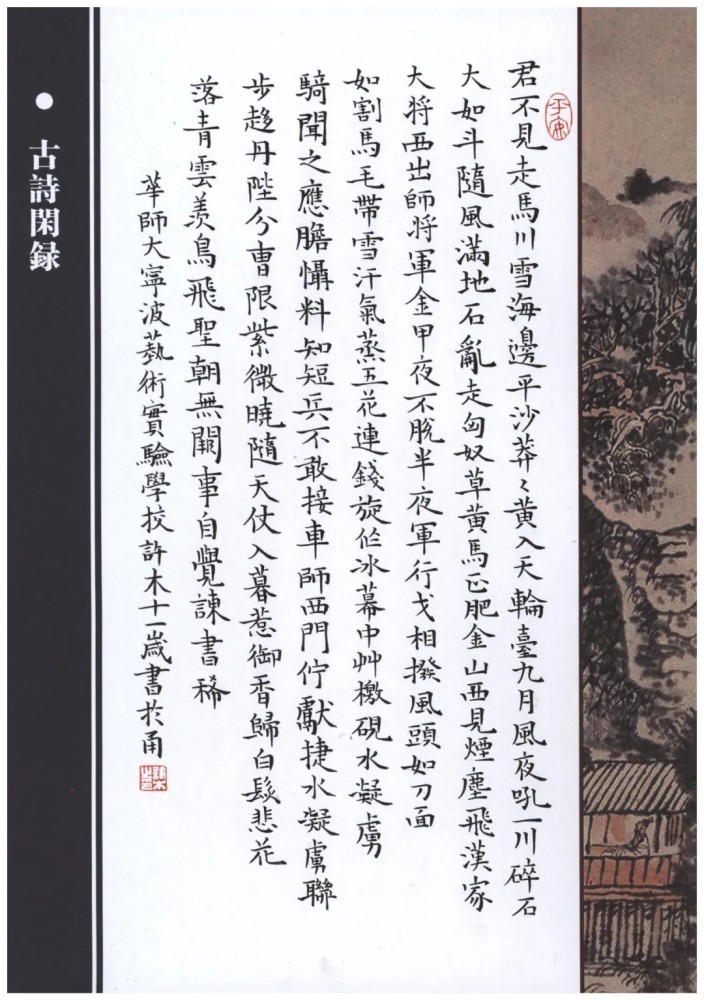 平安
君不見走馬川雪海邊平沙莽〻黄入天輪臺九月風夜吼一川碎石
大如斗隨風滿地石亂走匈奴草黄馬正肥金山西見煙塵飛漢家
大将西出師将軍金甲夜不脫半夜軍行戈相撥風頭如刀面
如割馬毛帶雪汗氣蒸五花連錢旋作冰幕中艸檄硯水凝虜
騎聞之應膽懾料知短兵不敢接車師西門佇獻捷水凝虜聯
步趍丹陛分曺限紫微曉隨天仗入暮惹御香歸白髮悲花
落青雲羨鳥飛聖朝無闕事自覺諫書稀
華師大寧波藝術實驗學校許木十一歲書於甬
古詩閑録